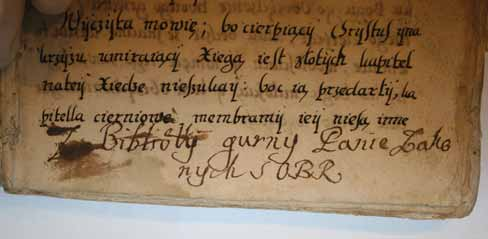 Wyczyta mowię; bo cierpiący Chrystus y na
krzyżu umieraiący Xięgą iest złotych kapitel
na tey Xiedze nieszukay: boc ią przedarły, ka
pitella cierniowe membramy iey niesą inne
Z Bibliotky gurny Panie Zako
nych S O B R